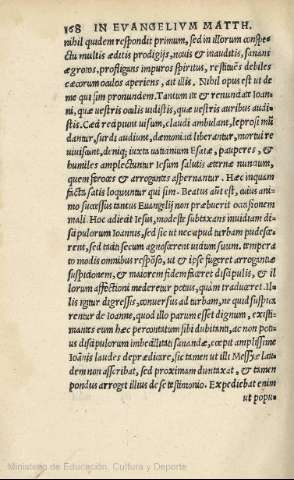 168 IN EVANGELIVM MATTH.
nihil quidem respondit primum, sed in illorum conspe-
ctu multis æditis prodigijs, nouis & inauditis, sanans
ægrotos, profligans impuros spiritus, restituẽs debiles
cæcorum oculos aperiens, ait illis. Nihil opus est ut de
me qui sim pronundem. Tantum ite & renundate Ioan-
ni, quæ uestris oculis uidistis, quæ uestris auribus audi-
stis. Cæci recipiunt uisum, claudi ambulant, leprosi mũ
dantur, surdi audiunt, dæmoniaci liberantur, mortui re
uiuiscunt, deniq; iuxta uaticinum Esaiæ, pauperes, &
humiles amplectuntur Iesum salutis æternæ nuncium,
quem feroces & arrogantes aspernantur. Hæc inquam
facta satis loquuntur qui sim. Beatus aũt est, cuius ani-
mo successus tantus Euangelij non præbuerit occasionem
mali. Hoc adiecit Iesus, modeste subtaxans inuidiam di-
scipulorum Ioannis, sed sic ut nec apud turbam pudesce-
rent, sed taciti secum agnoscerent uitium suum, tempera
to modis omnibus respõso, ut & ipse fugeret arrogantiæ
suspitionem, & maiorem fidem faceret discipulis, & il
lorum affectioni mederetur potius, quàm traduceret. Il-
lis igitur digressis, conuersus ad turbam, ne quid suspica
rentur de Ioanne, quod illo parum esset dignum, existi-
mantes eum hæc percontatum sibi dubitanti, ac non poti
us discipulorum imbecillitati sanandæ, cœpit amplissime
Ioãnis laudes deprædicare, sic tamen ut illi Messiæ lau-
dem non ascribat, sed proximam duntaxat, & tamen
pondus arroget illius de se testimonio. Expediebat enim
ut popu-
Ministerio de Educación, Cultura y Deporte